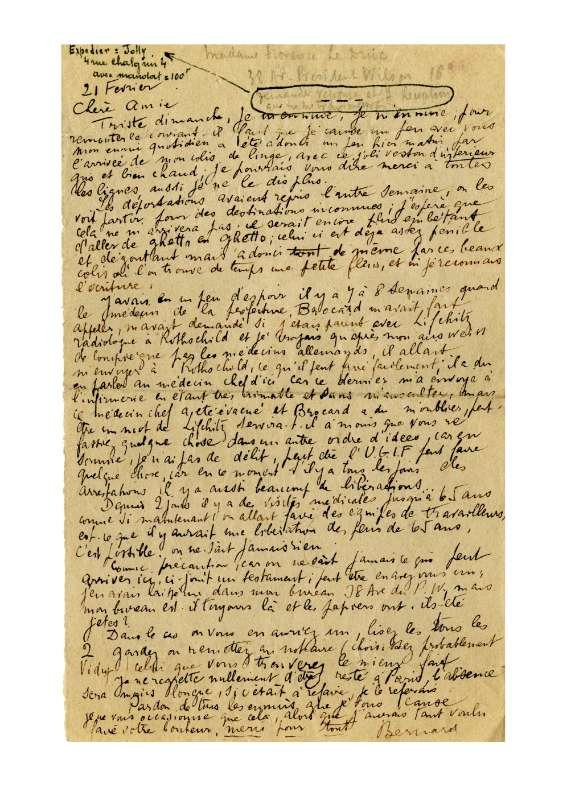 Expedier = Jolly
4 rue Chalgrin 4
avec mandat = 100f
Madame Florence Le Duc
38 Av. President Wilson 16e
21 Fevrier
Chère Amie
Triste dimanche, je m'ennuie, je m'ennuie, pour
rencontrer le courant. Il faut que je cause un peu avec vous
mon ennui quotidien a été adouci un peu hier matin par
l'arrivée de mon colis de linge, avec ce joli veston d'intérieur
gris et bien chaud, je pourrais vous dire merci à toutes
les lignes, aussi je ne le dis plus.
Les déportations avaient repris l'autre semaine, on les
voit partir pour des destinations inconnues, j'espère que
cela ne m'arrivera pas, il serait encore plus embêtant
d'aller de ghetto en ghetto, celui ci est déjà assez penible
et dégoutant mais adouci de guerre par ces beaux
colis où l'on trouve de temps une petite fleur, et où je reconnais
l'écriture.
J'avais eu un peu d'espoir il y a 7 à 8 semaines quand
le médecin de la prefecture, Brocard m'avait fait
appeler, m'avait demandé si j'étais parent avec Lifchitz
radiologue à Rothschild et je croyais qu'après mon
de Compiègne par les médecins allemands, il allait
m'envoyer à Rothschild, ce qu'il peut faire facilement, il a du
en parler au médecin chef d'ici car ce dernier m'a envoyé à
l'infirmerie en étant très aimable et sans m'ausculter, mais
ce médecin chef a été évacué et Brocard a du m'oublier, peut
être un mot de Lifchitz servira-t-il à moins que vous ne
fassiez quelque chose dans un autre ordre d'idées, car en
somme, je n'ai pas de délit, peut être l'U.G.I.F peut faire
quelque chose, car en ce moment s'il y a tous les jours des
arrestations il y a aussi beaucoup de libérations.
Depuis 2 jours il y a des visites médicales jusqu'à 65 ans
comme si maintenant on allait faire des equipes de travailleurs,
est-ce que il y aurait une libération des gens de 65 ans,
c'est possible, on ne sait jamais rien.
Comme précaution car on ne sait jamais ce qui peut
arriver ici, ci-joint un testament, peut être en avez vous un,
j'en avais laissé un dans mon bureau 38 Ave du P. W, mais
mon bureau est-il toujours là et les papiers ont-ils été
jetés?
Dans le cas où vous en auriez un, lisez les tous les
2 gardez ou remettez au notaire, choisissez probablement
celui que vous trouverez le mieux fait
Je ne regrette nullement d'être resté à Paris, l'absence
sera moins longue, si c'était à refaire, je le referais
Pardon de tous les ennuis que je vous cause
je ne vous occasionne que cela, alors que j'aurais tant voulu
faire votre bonheur, merci pour tout
Bernard